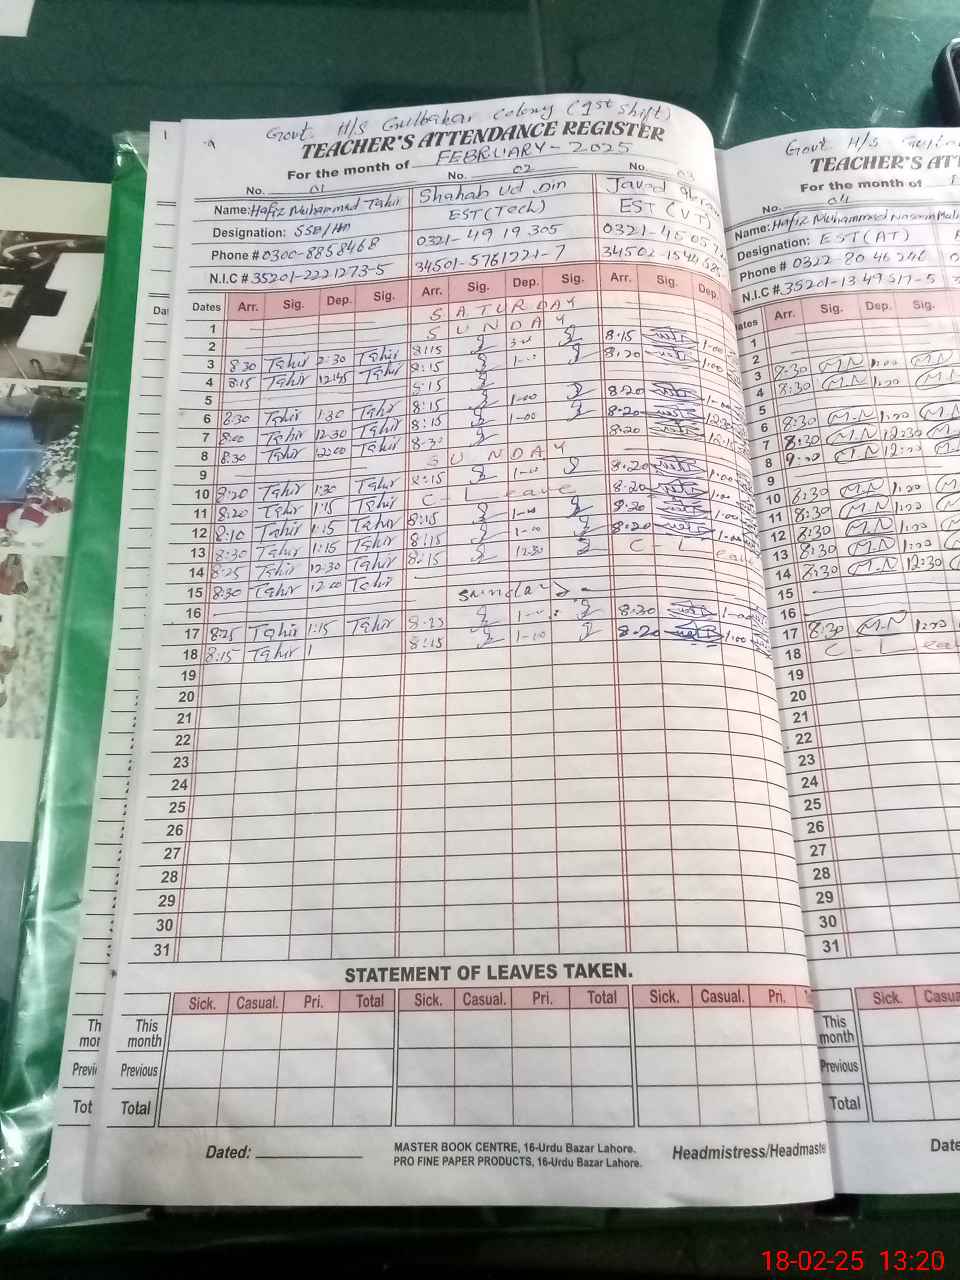 Govt. H/S Gulbahar Colony (1st Shift)
TEACHER'S ATTENDANCE REGISTER
For the month of FEBRUARY-2025
No. 01 No. 02 No. 03
Name: Hafiz Muhammad Tahir Shahab Ud Din Javed
Designation: EST (Tech) EST (VT)
Phone # 0300-8858468 0321-4919305 0321-45057
N.I.C # 35201-2221273-5 34501-5761221-7 34502-154
Dates Arr. Sig. Dep. Sig. Arr. Sig. Dep. Sig. Arr. Sig. Dep.
1 SATURDAY
2 SUNDAY
3 8:30 Tahir 2:30 Tahir 8:15 8:15 1:00
4 8:15 Tahir 12:45 Tahir 8:15 1-00 8:20 1:00
5 8:15
6 8:30 Tahir 1:30 Tahir 8:15 1-00 8:20
7 8:00 Tahir 12:30 Tahir 8:15 1-00 8:20 12:30
8 8:30 Tahir 12:00 Tahir 8:30 8:20
9 SUNDAY
10 8:20 Tahir 1:30 Tahir 8:15 1-00 8:20 1:00
11 8:20 Tahir 1:15 Tahir C-Leave 8:20 1:00
12 8:10 Tahir 1:15 Tahir 8:15 1-00 8:20 1:00
13 8:30 Tahir 1:15 Tahir 8:15 1-00 8:20 1:00
14 8:25 Tahir 12:30 Tahir 8:15 12:30 C-Leave
15 8:30 Tahir 12:00 Tahir
16 Sunday
17 8:25 Tahir 1:15 Tahir 8:25 1-00 8:20 1-00
18 8:15 Tahir 1 8:15 1-00 8:20 1:00
19
20
21
22
23
24
25
26
27
28
29
30
31
STATEMENT OF LEAVES TAKEN.
Sick. Casual. Pri. Total Sick. Casual. Pri. Total Sick. Casual. Pri.
This month
Previous
Total
Dated:
MASTER BOOK CENTRE, 16-Urdu Bazar Lahore.
PRO FINE PAPER PRODUCTS, 16-Urdu Bazar Lahore.
Headmistress/Headmaste
Govt H/S
TEACHER'S AT
For the month of
No. 04
Name: Hafiz Muhammad
Designation: EST (AT)
Phone # 0322-8046246
N.I.C # 35201-1349517-5
Dates Arr. Sig. Dep. Sig.
1
2
3 8:30 M.N 1:00 M.N
4 8:30 M.N 1:00 M.N
5
6 8:30 M.N 1:00 M.N
7 8:30 M.N 12:30 M.N
8 9:00 M.N 12:00 M.N
9
10 8:30 M.N 1:00 M.N
11 8:30 M.N 1:00 M.N
12 8:30 M.N 1:00 M.N
13 8:30 M.N 1:00 M.N
14 8:30 M.N 12:30 M.N
15
16
17 8:30 M.N 1:00 M.N
18 C-Lea
19
20
21
22
23
24
25
26
27
28
29
30
31
Sick. Casua
This month
Previous
Total
Date
18-02-25 13:20